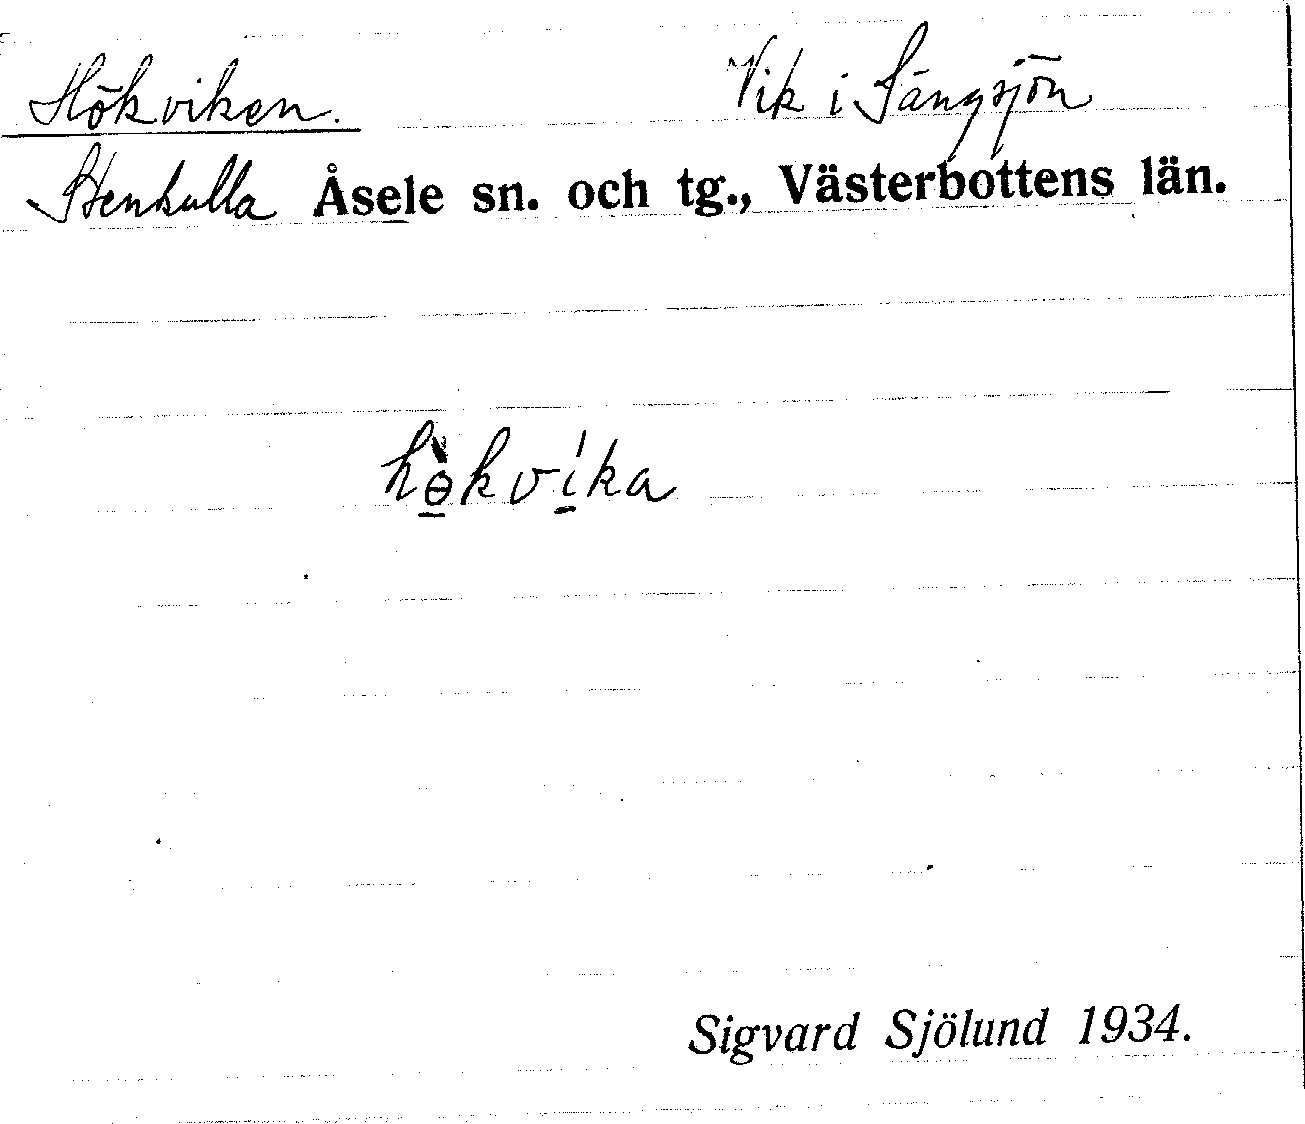 Hökviken. Vik i Sängsjön
Stenkulla Åsele sn. och tg., Västerbottens län.
hɵ̀kvíka
Sigvard Sjölund 1934.